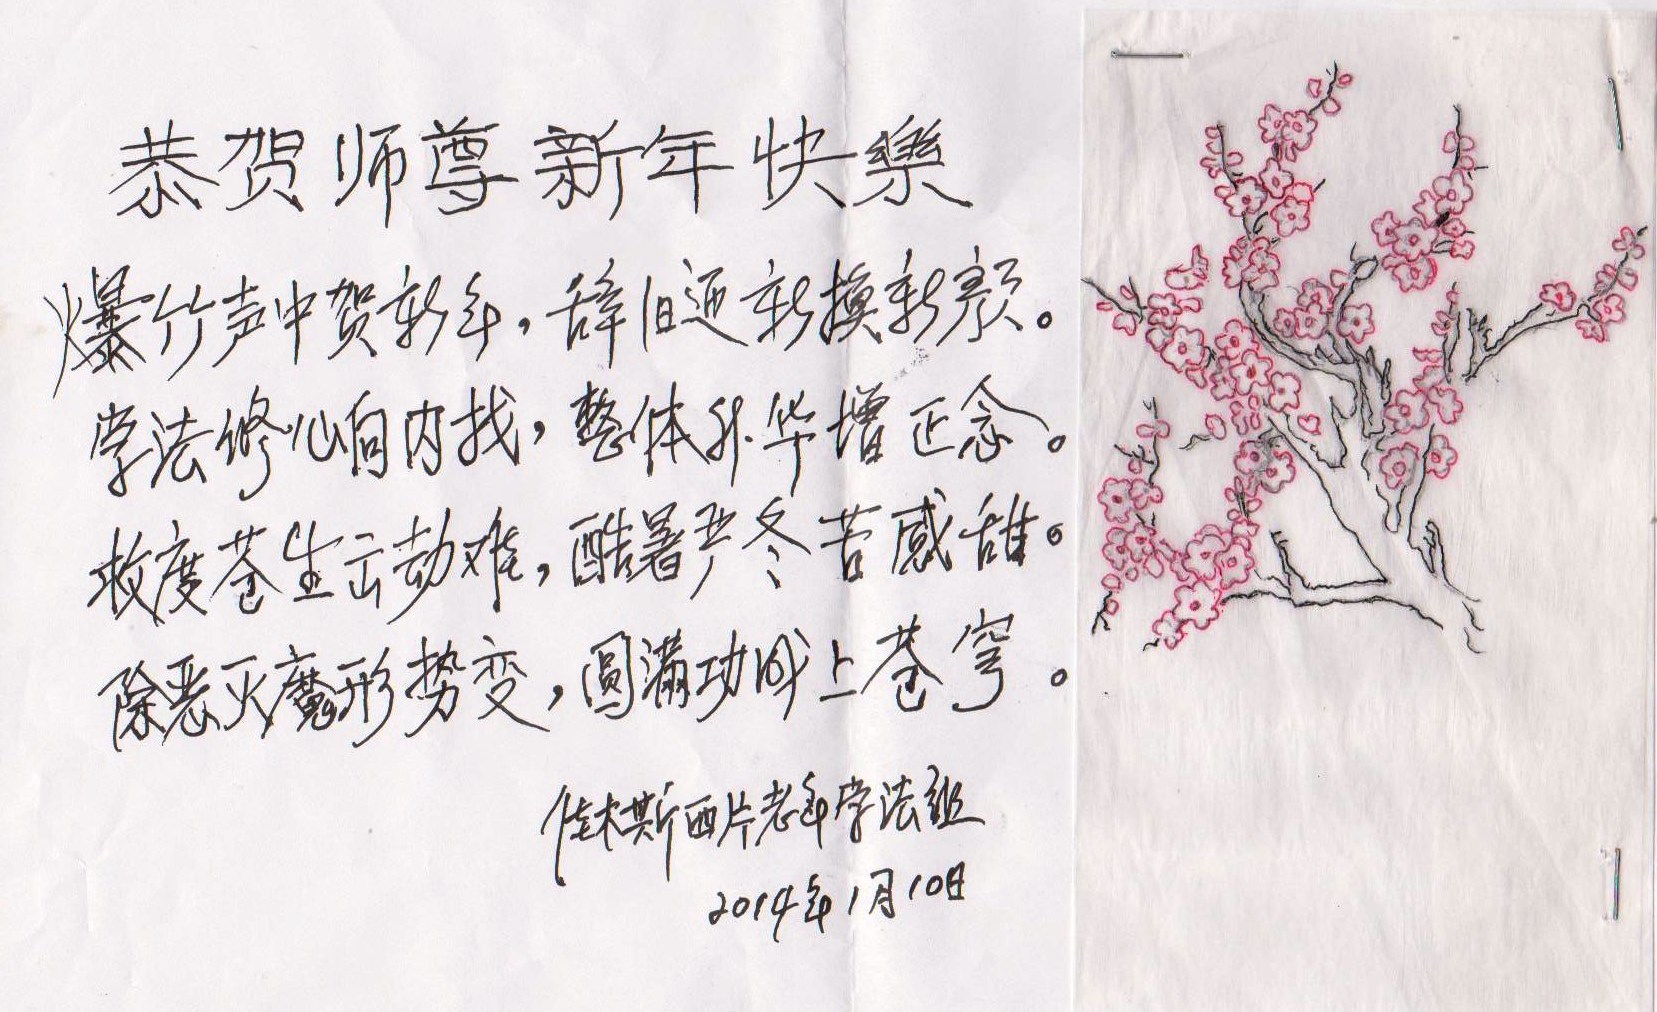 恭贺师尊新年快樂
爆竹声中贺新年，辞旧迎新换新颜。
学法修心向内找，整体升华增正念。
救度苍生去劫难，酷暑严冬苦感甜。
除恶灭魔形势变，圆满功成上苍穹。
佳木斯西片老年学法组
2014年1月10日